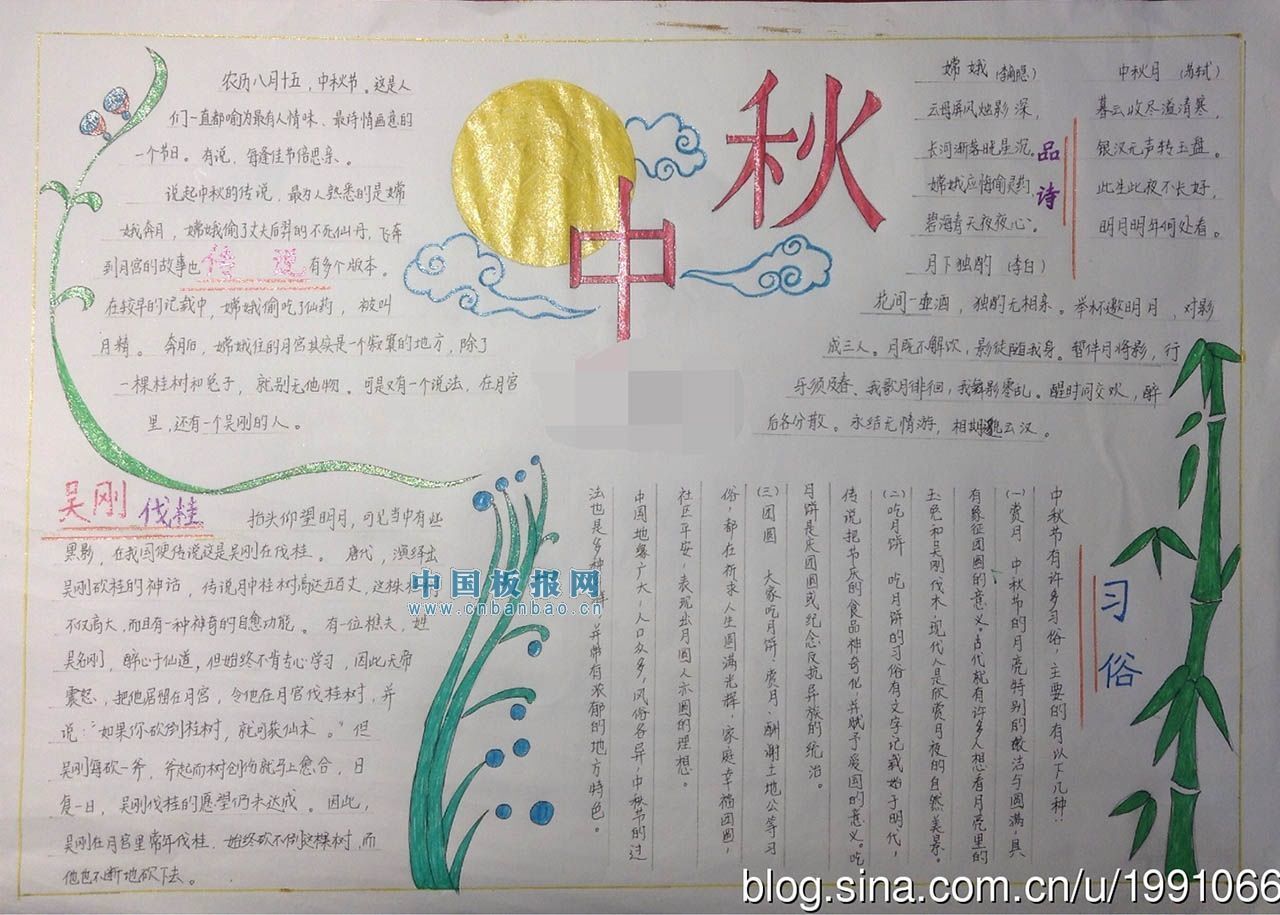 中秋
农历八月十五，中秋节。这是人
们一直都喻为最有人情味、最诗情画意的
一个节日。有说，每逢佳节倍思亲。
说起中秋的传说，最为人熟悉的是嫦
娥奔月，嫦娥偷了丈夫后羿的不死仙丹，飞奔
到月宫的故事也
传说
有多个版本。
在较早的记载中，嫦娥偷吃了仙药，被叫
月精。奔月后，嫦娥住的月宫其实是一个寂寞的地方，除了
一棵桂树和兔子，就别无他物。可是又有一个说法，在月宫
里，还有一个吴刚的人。
嫦娥（李商隐）
云母屏风烛影深，
长河渐落晓星沉。
嫦娥应悔偷灵药，
碧海青天夜夜心。
品诗
中秋月（苏轼）
暮云收尽溢清寒，
银汉无声转玉盘。
此生此夜不长好，
明月明年何处看。
月下独酌（李白）
花间一壶酒，独酌无相亲。举杯邀明月，对影
成三人。月既不解饮，影徒随我身。暂伴月将影，行
乐须及春。我歌月徘徊，我舞影零乱。醒时同交欢，醉
后各分散。永结无情游，相期邈云汉。
吴刚伐桂
抬头仰望明月，可见当中有些
黑影，在我国便传说这是吴刚在伐桂。唐代，演绎出
吴刚砍桂的神话，传说月中桂树高达五百丈，这株
不仅高大，而且有一种神奇的自愈功能。有一位樵夫，姓
吴名刚，醉心于仙道，但始终不肯专心学习，因此天帝
震怒，把他居留在月宫，令他在月宫伐桂树，并
说：“如果你砍倒桂树，就可获仙术。”但
吴刚每砍一斧，斧起而树创伤就马上愈合，日
复一日，吴刚伐桂的愿望仍未达成。因此，
吴刚在月宫里常年伐桂，始终砍不倒这棵树，而
他也不断地砍下去。
习俗
中秋节有许多习俗，主要的有以下几种：
（一）赏月 中秋节的月亮特别的皎洁与圆满，具
有象征团圆的意义。古代就有许多人想看月亮里的
玉兔和吴刚伐木，现代人是欣赏月夜的自然美景。
（二）吃月饼 吃月饼的习俗有文字记载始于明代，
传说把节庆的食品神奇化，并赋予爱国的意义。吃
月饼是庆团圆或纪念反抗异族的统治。
（三）团圆 大家吃月饼、赏月、酬谢土地公等习
俗，都在祈求人生圆满光辉，家庭幸福团圆，
社区平安，表现出月圆人亦圆的理想。
中国地缘广大，人口众多，风俗各异，中秋节的过
法也是多种样，并带有浓郁的地方特色。
中国板报网
www.cnbanbao.cn
blog.sina.com.cn/u/1991066